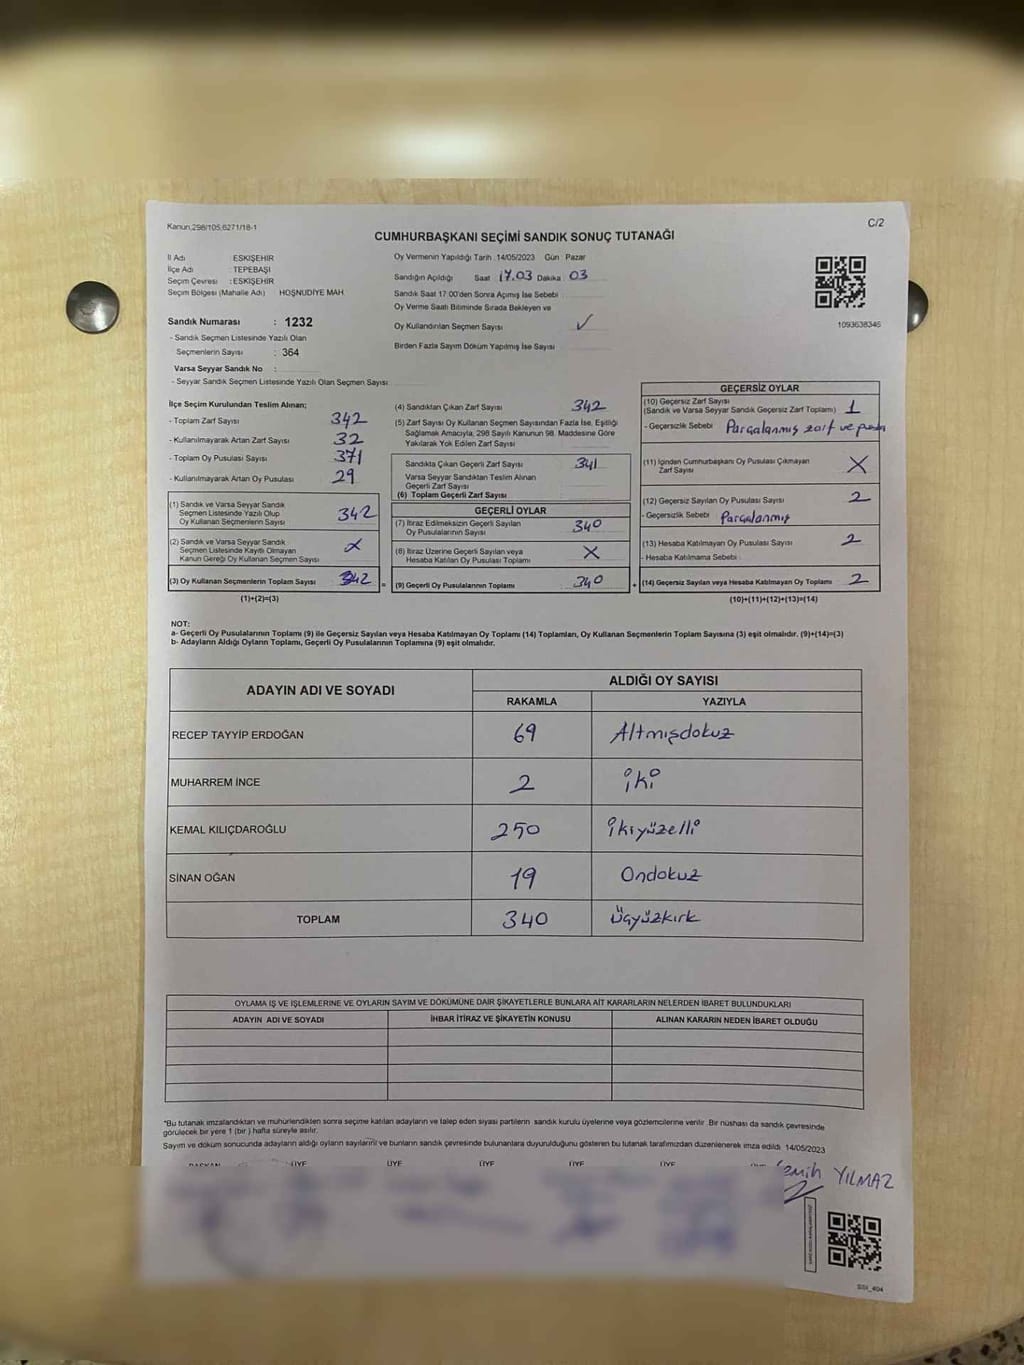 Kanun,298/105,6271/18-1
C/2
CUMHURBAŞKANI SEÇİMİ SANDIK SONUÇ TUTANAĞI
İl Adı ESKİŞEHİR
İlçe Adı : TEPEBAŞI
Seçim Çevresi : ESKİŞEHİR
Seçim Bölgesi (Mahalle Adı) HOŞNUDİYE MAH.
Sandık Numarası : 1232
- Sandık Seçmen Listesinde Yazılı Olan
Seçmenlerin Sayısı : 364
Varsa Seyyar Sandık No :
- Seyyar Sandık Seçmen Listesinde Yazılı Olan Seçmen Sayısı
Oy Vermenin Yapıldığı Tarih : 14/05/2023 Gün Pazar
Sandığın Açıldığı Saat 17.03 Dakika 03
Sandık Saat 17:00'den Sonra Açımış İse Sebebi
Oy Verme Saati Bitiminde Sırada Bekleyen ve
Oy Kullandırılan Seçmen Sayısı ✓
Birden Fazla Sayım Döküm Yapılmış İse Sayısı
1093638346
İlçe Seçim Kurulundan Teslim Alınan;
- Toplam Zarf Sayısı 342
- Kullanılmayarak Artan Zarf Sayısı 32
- Toplam Oy Pusulası Sayısı 371
- Kullanılmayarak Artan Oy Pusulası 29
(1) Sandık ve Varsa Seyyar Sandık
Seçmen Listesinde Yazılı Olup
Oy Kullanan Seçmenlerin Sayısı 342
(2) Sandık ve Varsa Seyyar Sandık
Seçmen Listesinde Kayıtlı Olmayan
Kanun Gereği Oy Kullanan Seçmen Sayısı X
(3) Oy Kullanan Seçmenlerin Toplam Sayısı 342 =
(1)+(2)=(3)
(4) Sandıktan Çıkan Zarf Sayısı 342
(5) Zarf Sayısı Oy Kullanan Seçmen Sayısından Fazla İse, Eşitliği
Sağlamak Amacıyla, 298 Sayılı Kanunun 98. Maddesine Göre
Yakılarak Yok Edilen Zarf Sayısı
Sandıkta Çıkan Geçerli Zarf Sayısı 341
Varsa Seyyar Sandıktan Teslim Alınan
Geçerli Zarf Sayısı
(6) Toplam Geçerli Zarf Sayısı
GEÇERLİ OYLAR
(7) İtiraz Edilmeksizin Geçerli Sayılan
Oy Pusulalarının Sayısı 340
(8) İtiraz Üzerine Geçerli Sayılan veya
Hesaba Katılan Oy Pusulası Toplamı X
(9) Geçerli Oy Pusulalarının Toplamı 340 +
GEÇERSİZ OYLAR
(10) Geçersiz Zarf Sayısı
(Sandık ve Varsa Seyyar Sandık Geçersiz Zarf Toplamı) 1
- Geçersizlik Sebebi Parçalanmış zarf ve
(11) İçinden Cumhurbaşkanı Oy Pusulası Çıkmayan
Zarf Sayısı X
(12) Geçersiz Sayılan Oy Pusulası Sayısı 2
- Geçersizlik Sebebi Parçalanmış
(13) Hesaba Katılmayan Oy Pusulası Sayısı 2
- Hesaba Katılmama Sebebi
(14) Geçersiz Sayılan veya Hesaba Katılmayan Oy Toplamı 2
(10)+(11)+(12)+(13)=(14)
NOT:
a- Geçerli Oy Pusulalarının Toplamı (9) ile Geçersiz Sayılan veya Hesaba Katılmayan Oy Toplamı (14) Toplamları, Oy Kullanan Seçmenlerin Toplam Sayısına (3) eşit olmalıdır. (9)+(14)=(3)
b- Adayların Aldığı Oyların Toplamı, Geçerli Oy Pusulalarının Toplamına (9) eşit olmalıdır.
ADAYIN ADI VE SOYADI
ALDIĞI OY SAYISI
RAKAMLA YAZIYLA
RECEP TAYYİP ERDOĞAN 69 Altmışdokuz
MUHARREM İNCE 2 iki
KEMAL KILIÇDAROĞLU 250 ikiyüzelli
SİNAN OĞAN 19 Ondokuz
TOPLAM 340 Üçyüzkırk
OYLAMA İŞ VE İŞLEMLERİNE VE OYLARIN SAYIM VE DÖKÜMÜNE DAİR ŞİKAYETLERLE BUNLARA AİT KARARLARIN NELERDEN İBARET BULUNDUKLARI
ADAYIN ADI VE SOYADI İHBAR İTİRAZ VE ŞİKAYETİN KONUSU ALINAN KARARIN NEDEN İBARET OLDUĞU
*Bu tutanak imzalandıktan ve mühürlendikten sonra seçime katılan adayların ve talep eden siyasi partilerin sandık kurulu üyelerine veya gözlemcilerine verilir. Bir nüshası da sandık çevresinde
görülecek bir yere 1 (bir ) hafta süreyle asılır.
Sayım ve döküm sonucunda adayların aldığı oyların sayılarını ve bunların sandık çevresinde bulunanlara duyurulduğunu gösteren bu tutanak tarafımızdan düzenlenerek imza edildi 14/05/2023
BAŞKAN ÜYE ÜYE ÜYE ÜYE ÜYE
YILMAZ